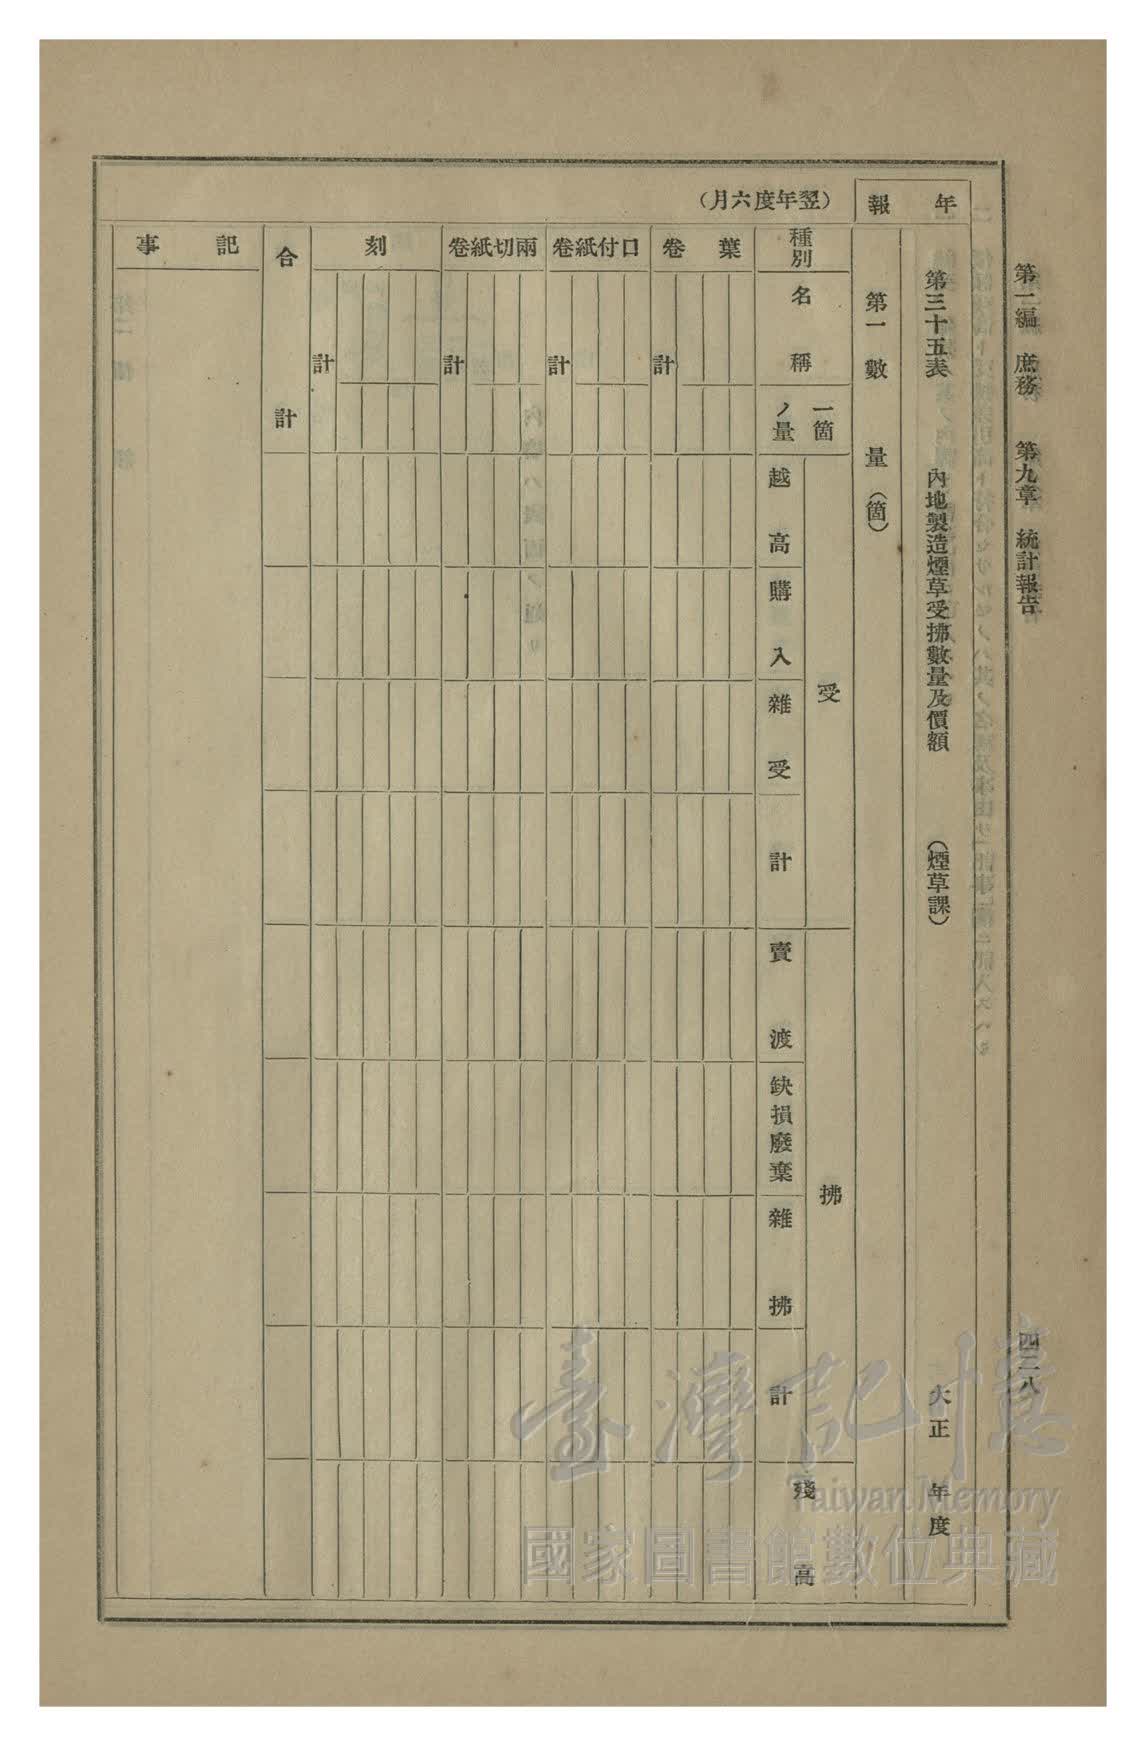 第一編 庶務 第九章 統計報告 四二八
年報
(翌年度六月)
第三十五表 內地製造煙草受拂數量及價額 (煙草課) 大正 年度
第一 數量(箇)
種別
名稱
一箇ノ量
受
越高
購入
雜受
計
拂
賣渡
缺損廢棄
雜拂
計
殘高
葉卷
計
口付紙卷
計
兩切紙卷
計
刻
計
合計
記事
臺灣記憶
Taiwan Memory
國家圖書館數位典藏